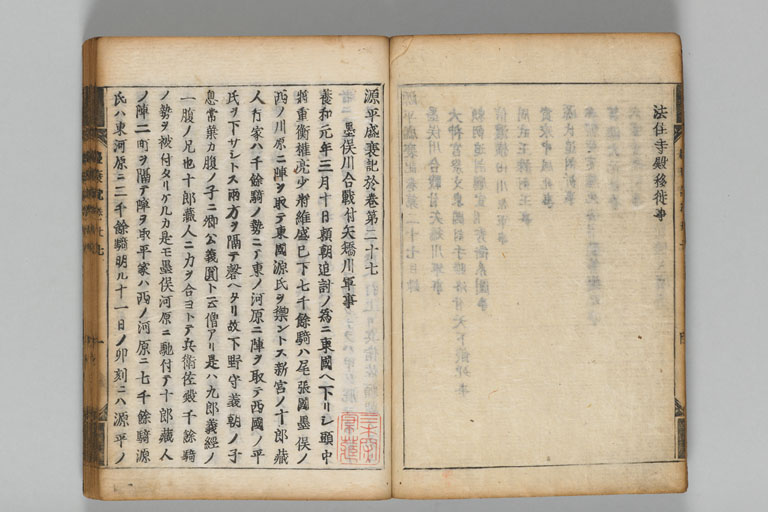 法住寺殿移徙事
源平盛衰記於巻第二十七
墨俣川合戰付矢矯川軍事
養和元年三月十日頼朝追討ノ爲ニ東國ヘ下リシ頭中
將重衡權亮少將維盛已下七千餘騎ハ尾張國墨俣ノ
西ノ川原ニ陣ヲ取テ東國源氏ヲ禦ントス新宮ノ十郎藏
人行家ハ千餘騎ノ勢ニテ東ノ河原ニ陣ヲ取テ西國ノ平
氏ヲ下サシトス兩方ヲ隔テ磬ヘタリ故下野守義朝ノ子
息常葉カ腹ノ子ニ卿公義圓ト云僧アリ是ハ九郎義經ノ
一腹ノ兄也十郎藏人ニ力ヲ合ヨトテ兵衛佐殿千餘騎
ノ勢ヲ被付タリケルカ是モ墨俣河原ニ馳付テ十郎藏人
ノ陣二町ヲ隔テ陣ヲ取平家ハ西ノ河原ニ七千餘騎源
氏ハ東河原ニ二千餘騎明ル十一日ノ卯刻ニハ源平ノ